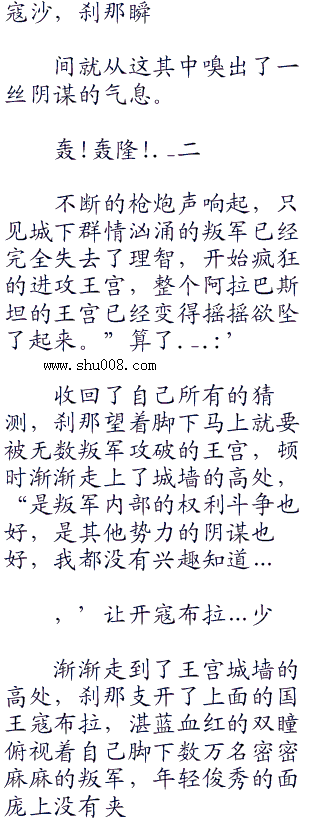 寇沙，刹那瞬
间就从这其中嗅出了一
丝阴谋的气息。
轰!轰隆!.._二
不断的枪炮声响起，只
见城下群情汹涌的叛军已经
完全失去了理智，开始疯狂
的进攻王宫，整个阿拉巴斯
坦的王宫已经变得摇摇欲坠
了起来。”算了._.:’
www.shu008.com
收回了自己所有的猜
测，刹那望着脚下马上就要
被无数叛军攻破的王宫，顿
时渐渐走上了城墙的高处，
“是叛军内部的权利斗争也
好，是其他势力的阴谋也
好，我都没有兴趣知道…
，’让开寇布拉…少
渐渐走到了王宫城墙的
高处，刹那支开了上面的国
王寇布拉，湛蓝血红的双瞳
俯视着自己脚下数万名密密
麻麻的叛军，年轻俊秀的面
庞上没有夹